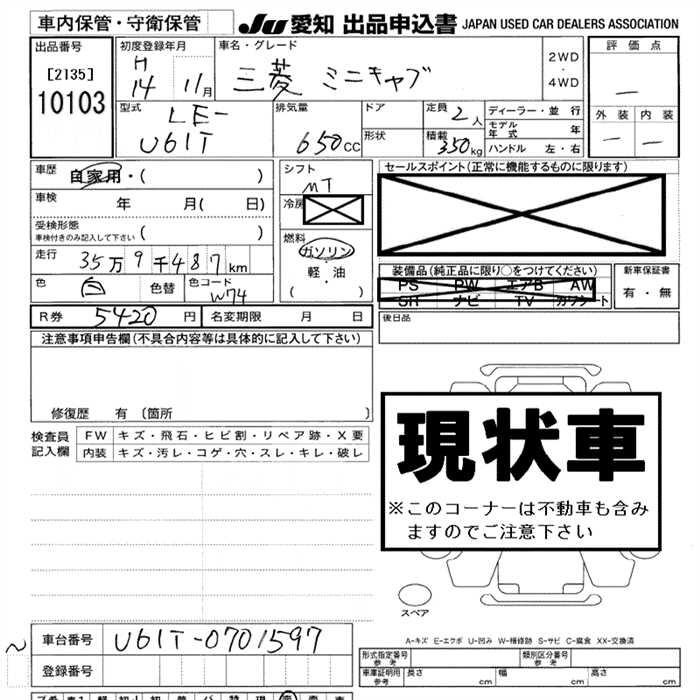 車内保管・守衛保管 JU 愛知 出品申込書 JAPAN USED CAR DEALERS ASSOCIATION
出品番号 初度登録年月 車名・グレード 評価点
[2135] H 14 11月 三菱 ミニキャブ 2WD・4WD －
10103
型式 LE- 排気量 ドア 定員 2人 ディーラー・並行 外装 内装
U61T 650CC 形状 積載 350kg モデル年式 年 － －
ハンドル 左・右
車歴 自家用・( ) シフト MT セールスポイント(正常に機能するものに限ります)
車検 年 月( 日) 冷房
受検形態
車検付きのみ記入して下さい ( ) 燃料
走行 35万9千487km ガソリン・軽・油 ( ) 装備品(純正品に限り○をつけてください) 新車保証書
色 白 色替 色コード W74 PS PW エアB AW 有・無
SR ナビ TV カワシート
R券 5420円 名変期限 月 日 後日品
注意事項申告欄(不具合内容等は具体的に記入して下さい)
修復歴 有 〔箇所 〕
検査員 FW キズ・飛石・ヒビ割・リペア跡・X要
記入欄 内装 キズ・汚レ・コゲ・穴・スレ・キレ・破レ
現状車
※このコーナーは不動車も含み
ますのでご注意下さい
スペア
A-キズ E-エクボ U-凹み W-補修跡 S-サビ C-腐食 XX-交換済
車台番号 U61T-0701597
登録番号
形式指定番号 参考 類別区分番号 参考
車庫証明用 参考 長さ cm 幅 cm 高さ cm